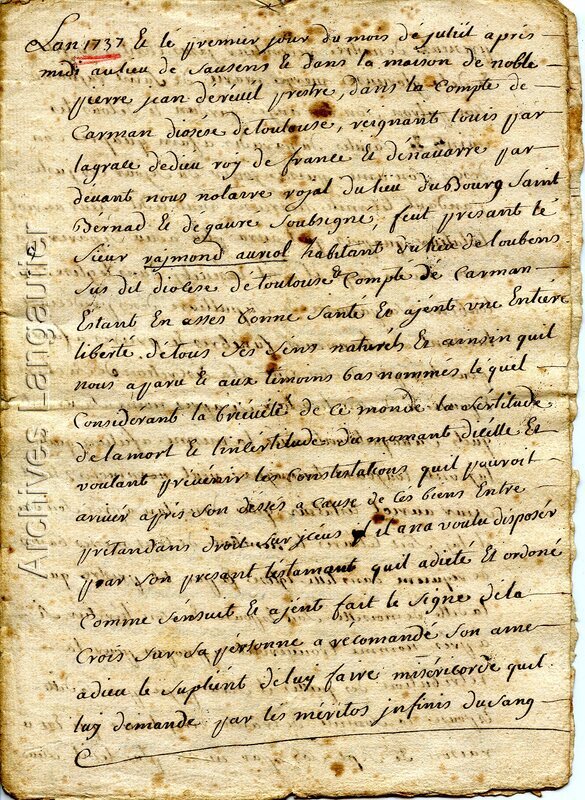 Lan 1737 et le premier jour du mois dejuliet apres
midi aulieu de Sausens et dans la maison de noble
pierre jean dereuil prestre, dans la Compte de
Carman diosése detoulouse, reignant louis par
lagrace dedieu roy de france et denauarre par
deuant nous notairre rojal dulieu duBourg Saint
Bérnad et dégauré Soubsigne, feut présant le
Sieur rajmond auriol habitant dulieu deloubens
Sus dit diosése detoulouse et Compte dé Carman
Estant En asses bonne Santé et ajent vne Entiére
liberté de tous Ses Sens naturéls Et ainsin quil
nous aparu et aux témoins bas nommés, le quel
Considerant la briéueté de ce monde la Sertitude
delamort et linsertitude du momant dicelle Et
voulant préuenir les Constestations quil pouroit
ariuer aprés Son désses a Cause de Ces biens Entre
prétandans droit Sur jceus il ana voulu disposér
par Son présant testamant quil adicté et ordoné
Comme sensuit Et ajent fait le Signe dela
Crois Sur sa pérsonne a recomandé Son ame
adieu le Supliént deluy faire miséricorde quil
luy demande par les méritos jnfinis dusang
Archives Langautier